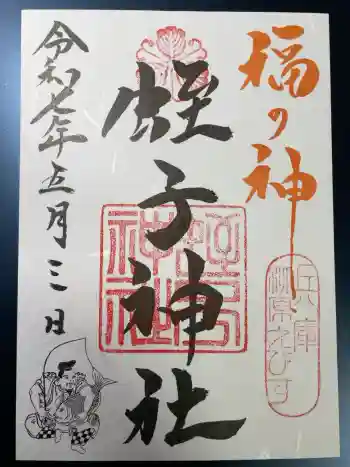 福の神
兵庫
柳原えびす
蛭子神社
蛭子神社
令和七年五月三日